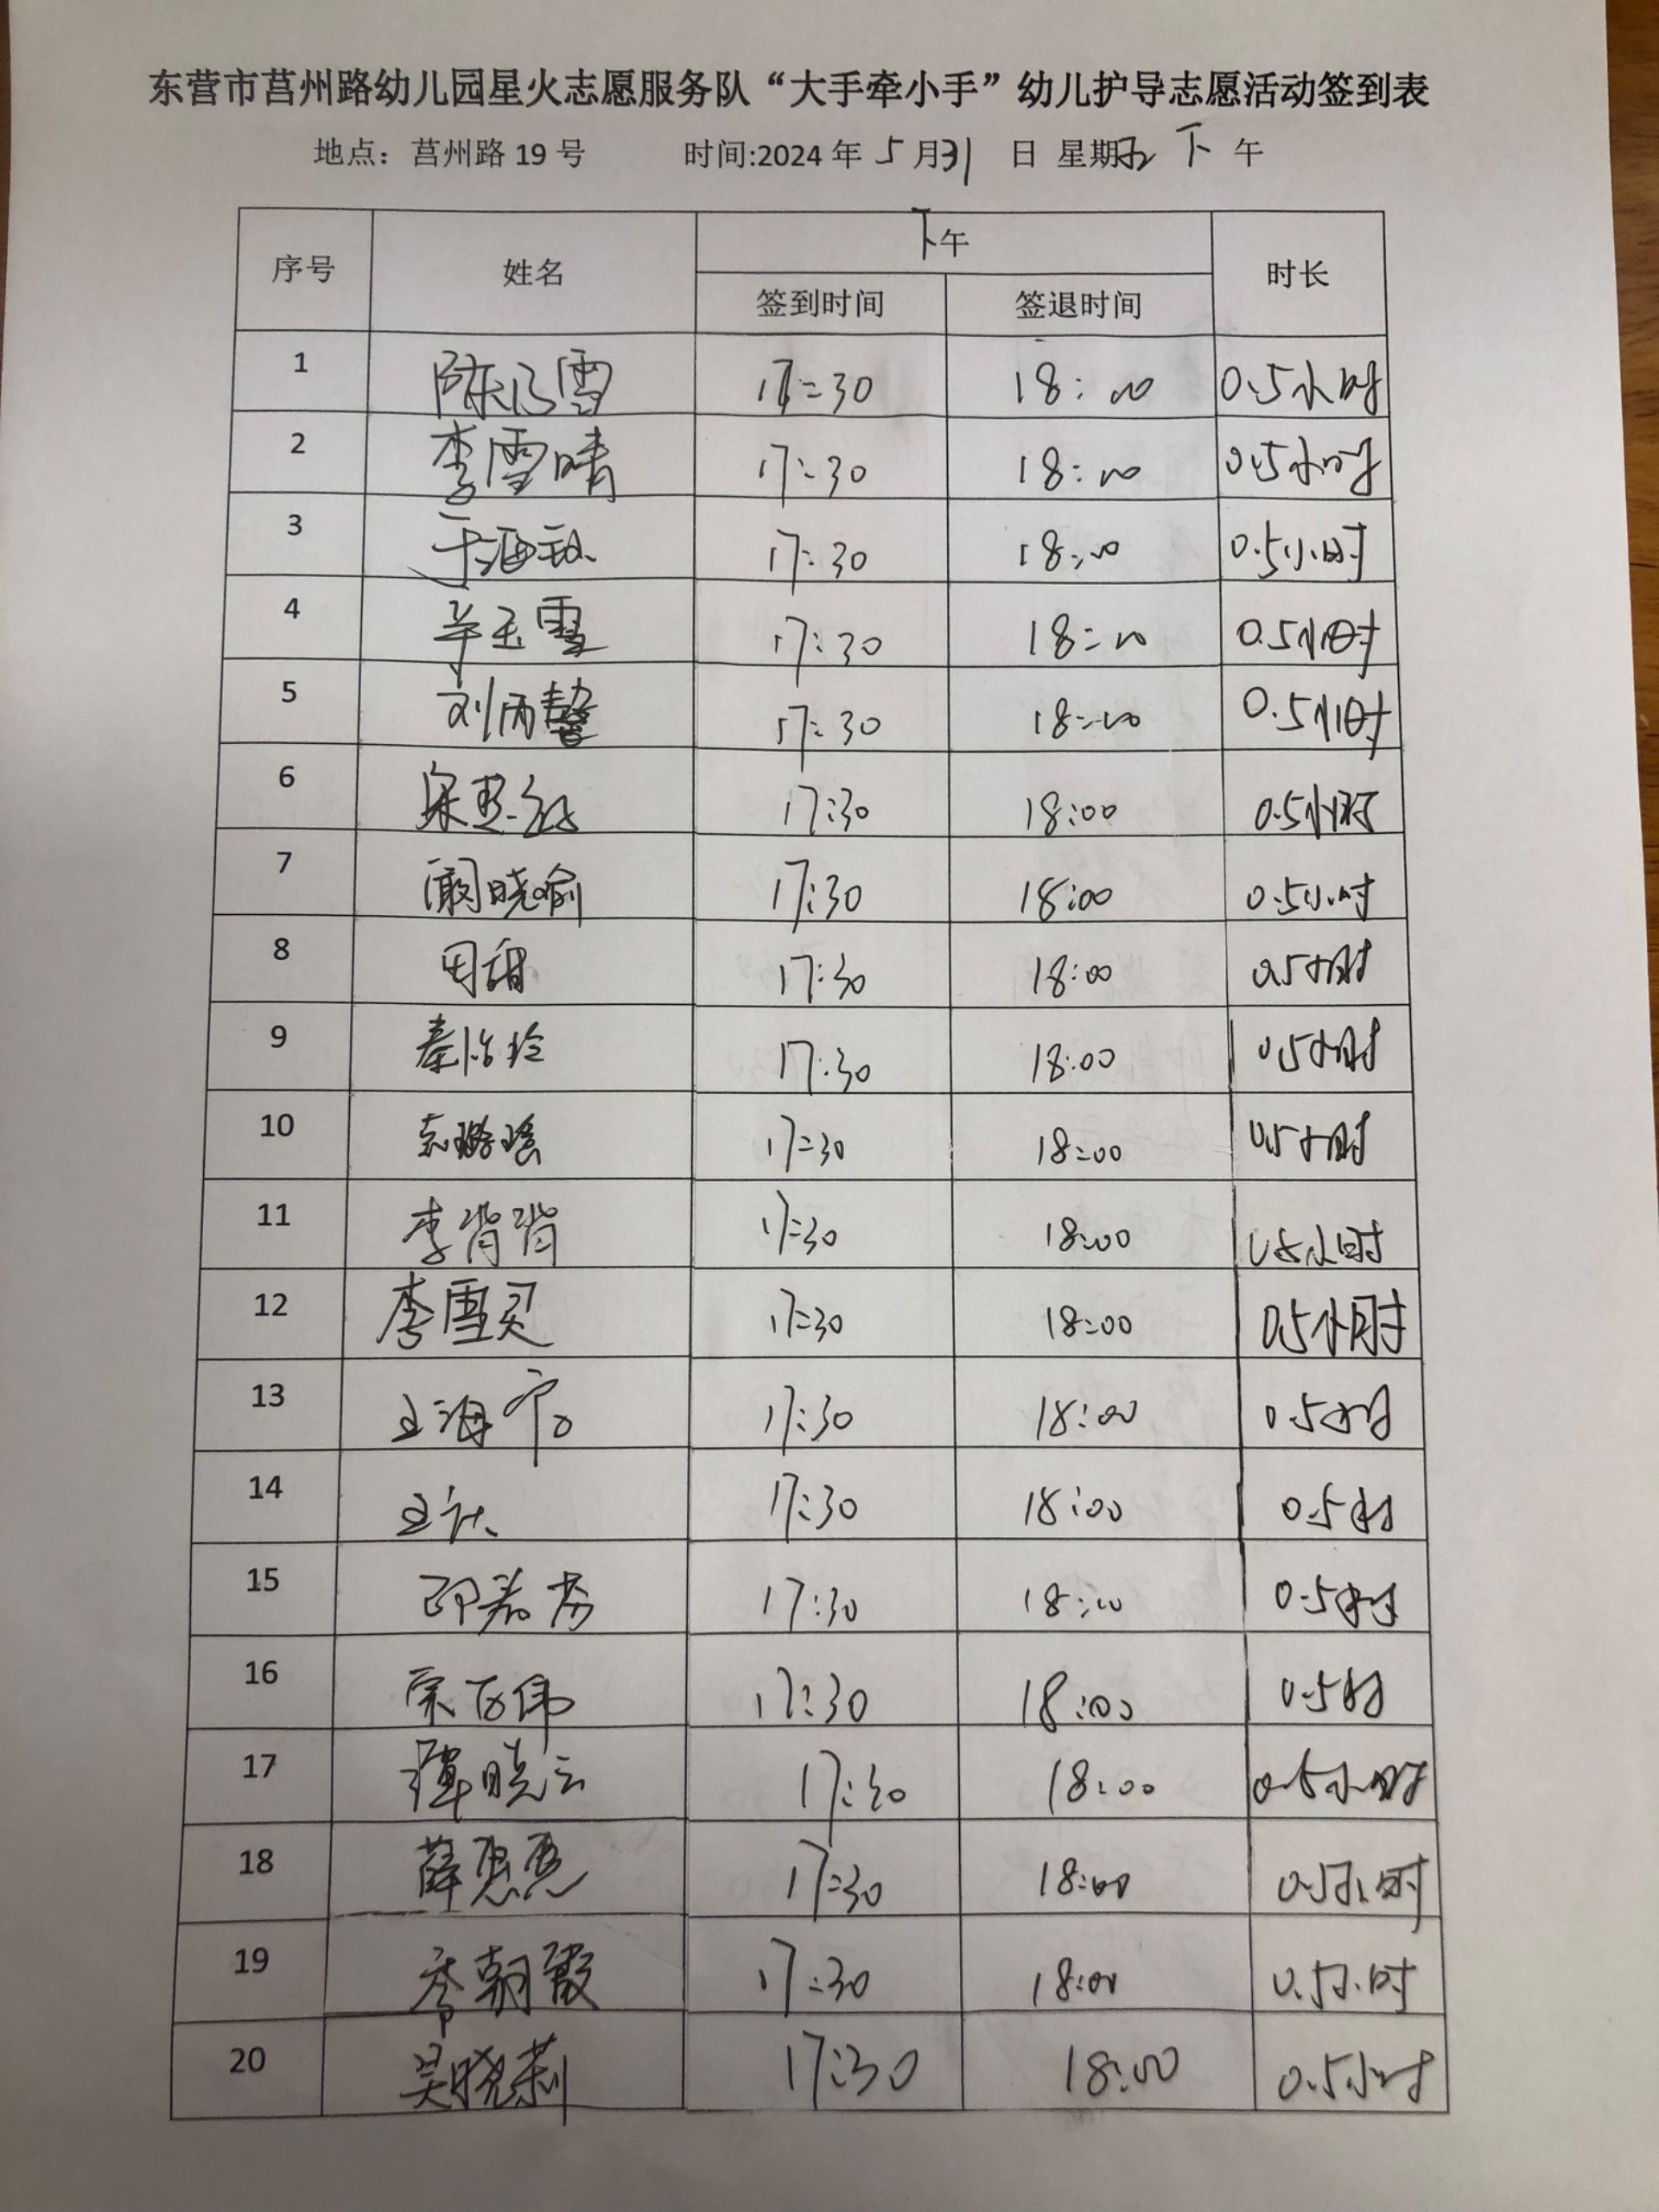 东营市莒州路幼儿园星火志愿服务队“大手牵小手”幼儿护导志愿活动签到表
地点：莒州路 19 号 时间:2024 年 5 月 31 日 星期五 下 午
序号 姓名 下午 时长
签到时间 签退时间
1 陈乃雪 17:30 18:00 0.5小时
2 李雪晴 17:30 18:00 0.5小时
3 于海 17:30 18:00 0.5小时
4 辛玉雪 17:30 18:00 0.5小时
5 刘丙馨 17:30 18:00 0.5小时
6 宋 17:30 18:00 0.5小时
7 阚晓喻 17:30 18:00 0.5小时
8 田甜 17:30 18:00 0.5小时
9 秦怡玲 17:30 18:00 0.5小时
10 袁璐瑶 17:30 18:00 0.5小时
11 李肖肖 17:30 18:00 0.5小时
12 李雪灵 17:30 18:00 0.5小时
13 王海宁 17:30 18:00 0.5小时
14 王 17:30 18:00 0.5小时
15 邵嘉 17:30 18:00 0.5小时
16 伟 17:30 18:00 0.5小时
17 谭晓云 17:30 18:00 0.5小时
18 薛恩恩 17:30 18:00 0.5小时
19 李朝霞 17:30 18:00 0.5小时
20 吴晓莉 17:30 18:00 0.5小时